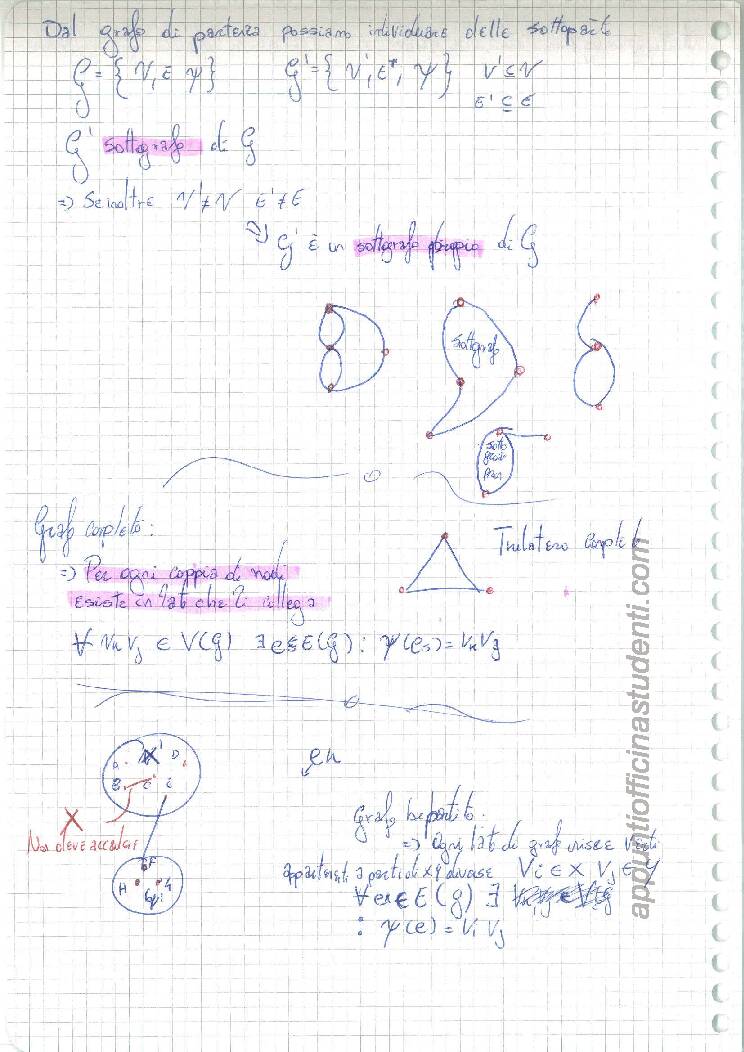 Dal grafo di partenza possiamo individuare delle sottoparti
G = { V, E ψ } G' = { V', E', ψ } V' ⊆ V
E' ⊆ E
G' sottografo di G
=> Se inoltre V' ≠ V E' ≠ E
=> G' è un sottografo proprio di G
sottografo
sotto
grafo
prop
Grafo completo:
Trilatero completo
=> Per ogni coppia di nodi
esiste un lato che li collega
∀ Vk Vj ∈ V(G) ∃ es ∈ E(G) : ψ(es) = Vk Vj
D
B C
ek
X
Non deve accadere
Grafo bipartito.
=> ogni lato di grafo unisce vertici
appartenenti a parti di x y diverse Vi ∈ X Vj ∈ Y
∀ ek ∈ E(G) ∃
: ψ(e) = Vi Vj
F
H G
appuntiofficinastudenti.com